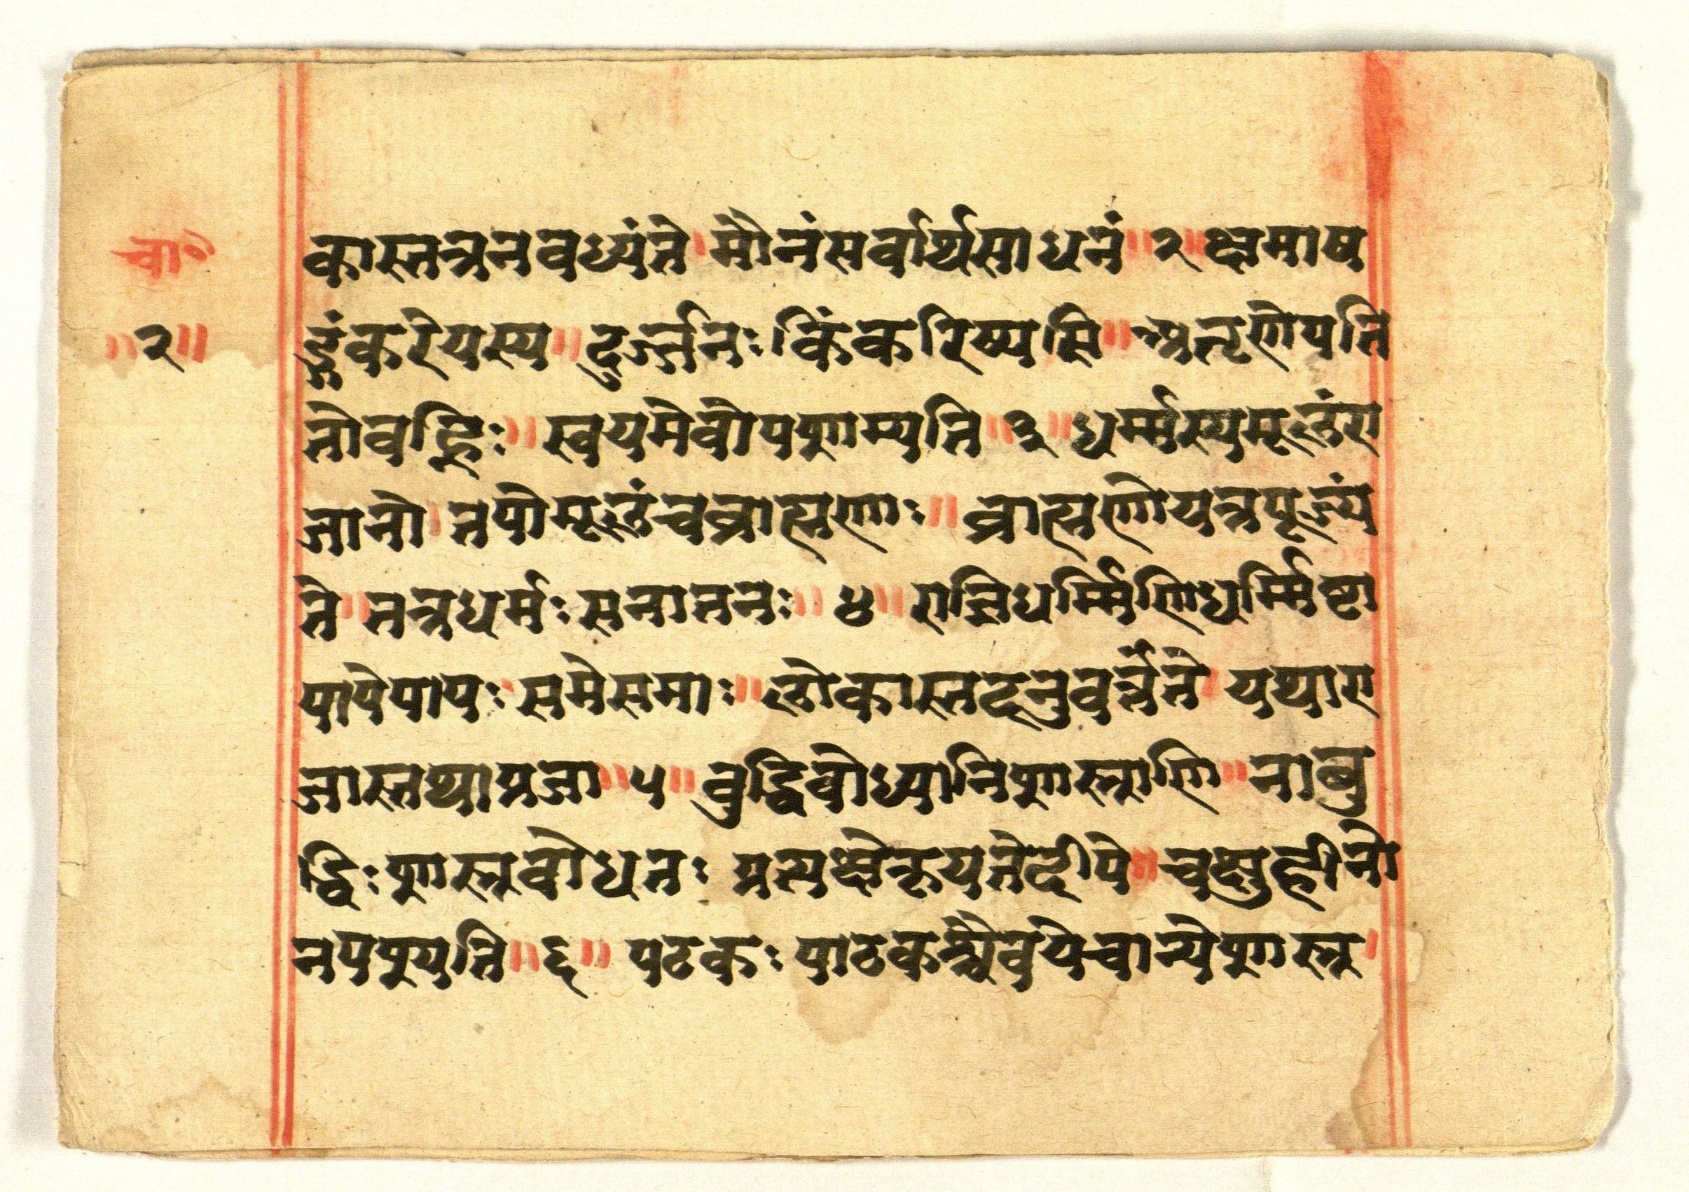 चा॰
॥२॥
कास्तत्रनवध्यंते।मौनंसर्वार्थसाधनं॥२॥क्षमाष
ड्गंकरेयस्य॥दुर्ज्जनःकिंकरिष्यसि॥अतृणेयति
तोवह्निः॥स्वयमेवोपशाम्यति॥३॥धर्म्मस्यमूलंरा
जानो।तपोमूलंचब्राह्मणाः॥ब्राह्मणोयत्रपूज्यं
ते॥तत्रधर्मःसनातनः॥४॥राज्ञिधर्म्मिणिधर्म्मिष्टा
पापेपापःसमेसमाः॥लोकास्तद्नुवर्त्तंते।यथारा
जास्तथाप्रजा॥५॥बुद्धिबोध्यानिशास्त्राणि॥नाबु
द्धिःशास्त्रबोधनः।प्रत्यक्षेकृयतेदीपे॥चक्षुहीनो
नपश्यति॥६॥पठकःपाठकश्चैवयेचान्येशास्त्र।